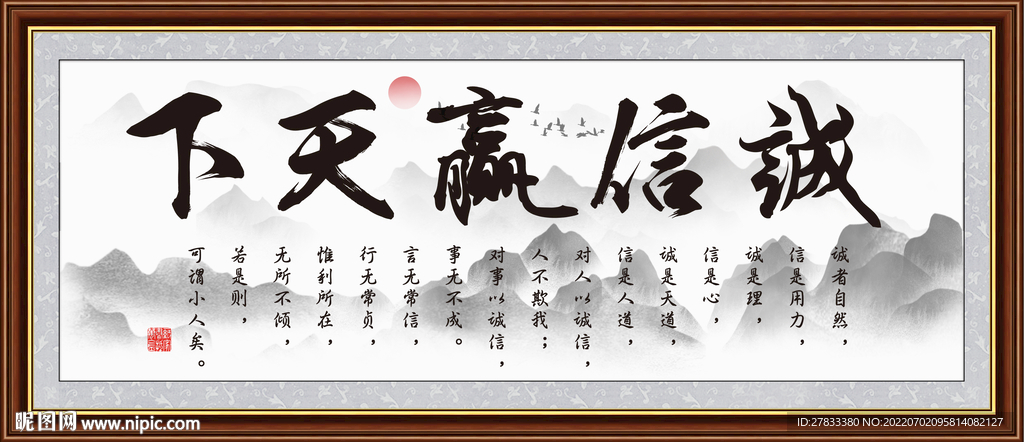 誠信赢天下
诚者自然，
信是用力，
诚是理，
信是心，
诚是天道，
信是人道，
对人以诚信，
人不欺我；
对事以诚信，
事无不成。
言无常信，
行无常贞，
惟利所在，
无所不倾，
若是则，
可谓小人矣。
昵图网 www.nipic.com
ID:27833380 NO:20220702095814082127